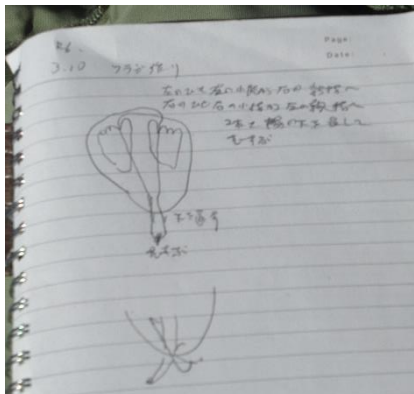 Page:
Date:
R6.
3.10 フランケ作り
左のひも 左の小指から右の親指へ
右のひも 右の小指から左の親指へ
2本で輪の下を通して
むすぶ
下を通す
むすぶ